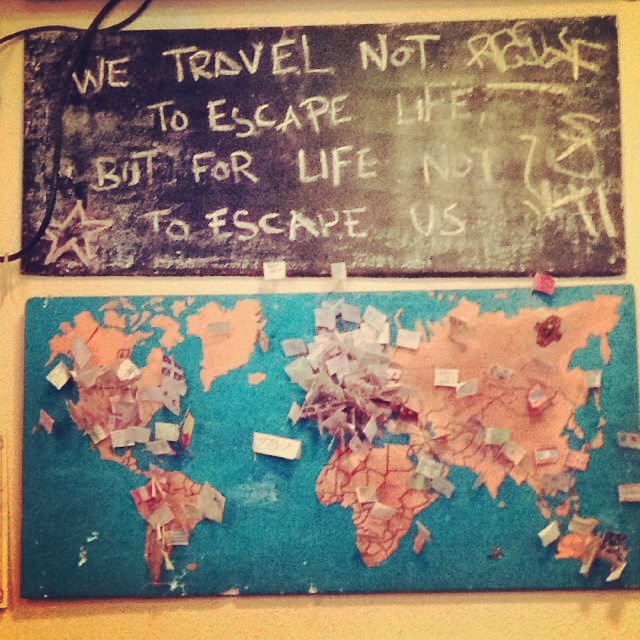 WE TRAVEL NOT
TO ESCAPE LIFE,
BUT FOR LIFE NOT
TO ESCAPE US